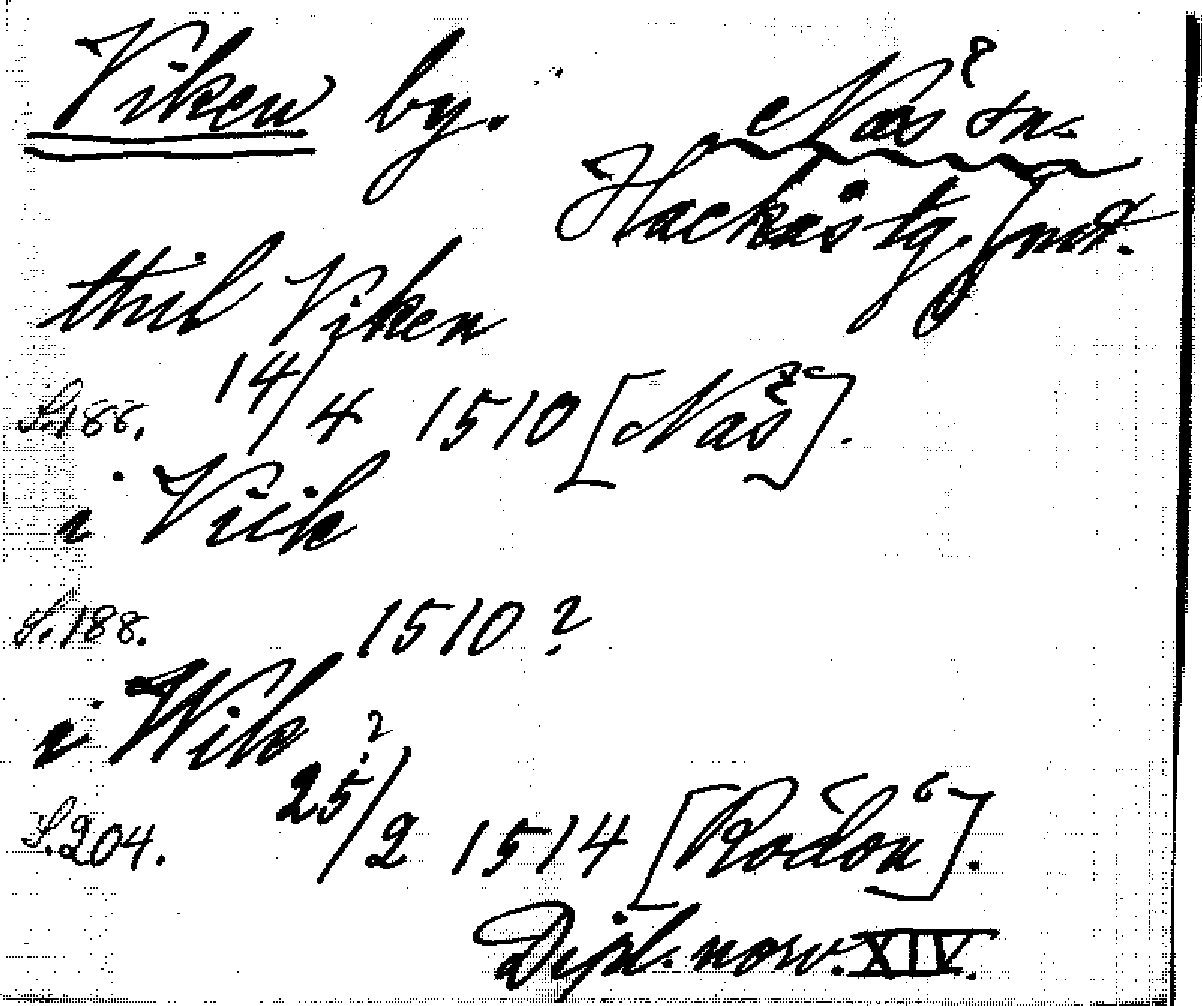 Viken by.
Näs sn.
Hackås tg. Jmt.
thil Viken
S. 188. 14/4 1510 [Näs].
i Viik
S. 188. 1510?
i Wik
S. 204. 25?/2 1514 [Rödön].
Dipl. norv. XIV.